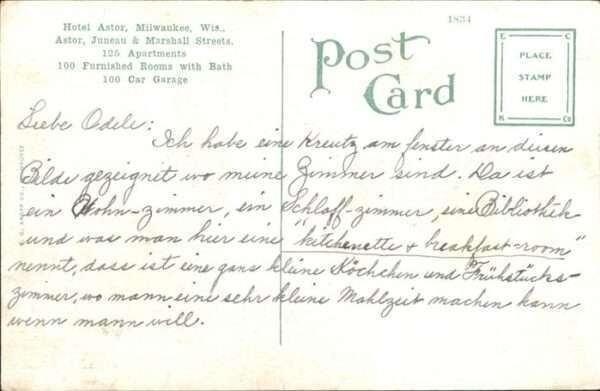 Hotel Astor, Milwaukee, Wis.,
Astor, Juneau & Marshall Streets.
125 Apartments
100 Furnished Rooms with Bath
100 Car Garage
1834
Post
Card
E C
PLACE
STAMP
HERE
K Co
Liebe Odele:
Ich habe eine Kreutz am fenster an diesen
Bilde gezeignet wo meine Zimmer sind. Da ist
ein Wohn-zimmer, ein Schlaff-zimmer, eine Bibliothek
und was man hier eine "kitchenette & breakfast-room"
nennt, dass ist eine gans kleine Köchchen und Frühstücks-
zimmer, wo mann eine sehr kleine Mahlzeit machen kann
wenn mann will.